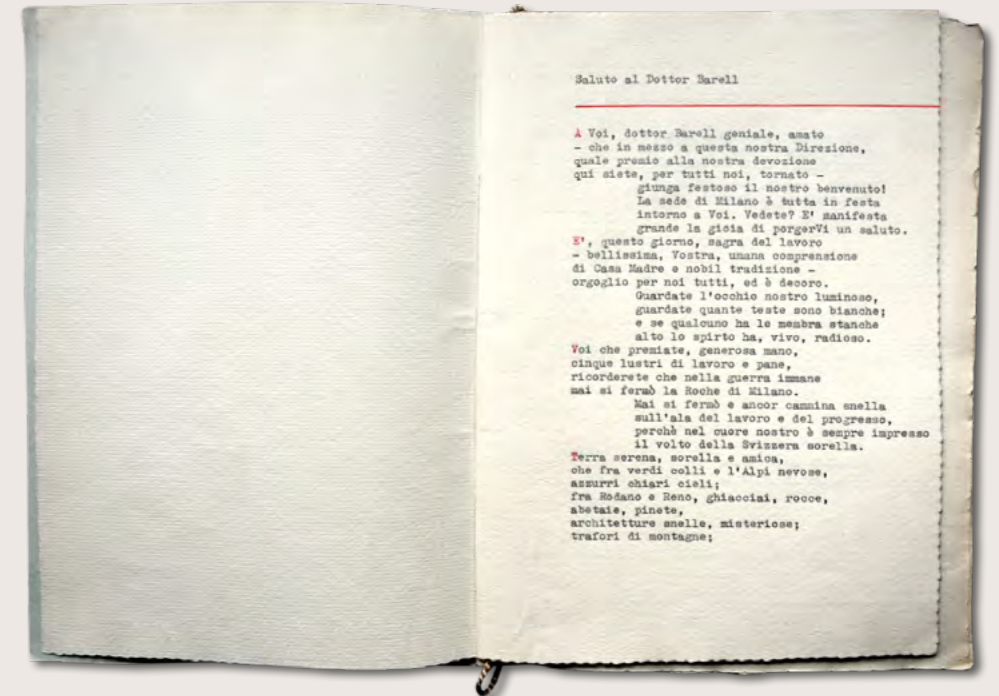 Saluto al Dottor Barell
A Voi, dottor Barell geniale, amato
- che in mezzo a questa nostra Direzione,
quale premio alla nostra devozione
qui siete, per tutti noi, tornato -
giunga festoso il nostro benvenuto!
La sede di Milano è tutta in festa
intorno a Voi. Vedete? E' manifesta
grande la gioia di porgerVi un saluto.
E', questo giorno, sagra del lavoro
- bellissima, Vostra, umana comprensione
di Casa Madre e nobil tradizione -
orgoglio per noi tutti, ed è decoro.
Guardate l'occhio nostro luminoso,
guardate quante teste sono bianche;
e se qualcuno ha le membra stanche
alto lo spirto ha, vivo, radioso.
Voi che premiate, generosa mano,
cinque lustri di lavoro e pane,
ricorderete che nella guerra immane
mai si fermò la Roche di Milano.
Mai si fermò e ancor cammina snella
sull'ala del lavoro e del progresso,
perchè nel cuore nostro è sempre impresso
il volto della Svizzera sorella.
Terra serena, sorella e amica,
che fra verdi colli e l'Alpi nevose,
azzurri chiari cieli;
fra Rodano e Reno, ghiacciai, rocce,
abetaie, pinete,
architetture snelle, misteriose;
trafori di montagne;